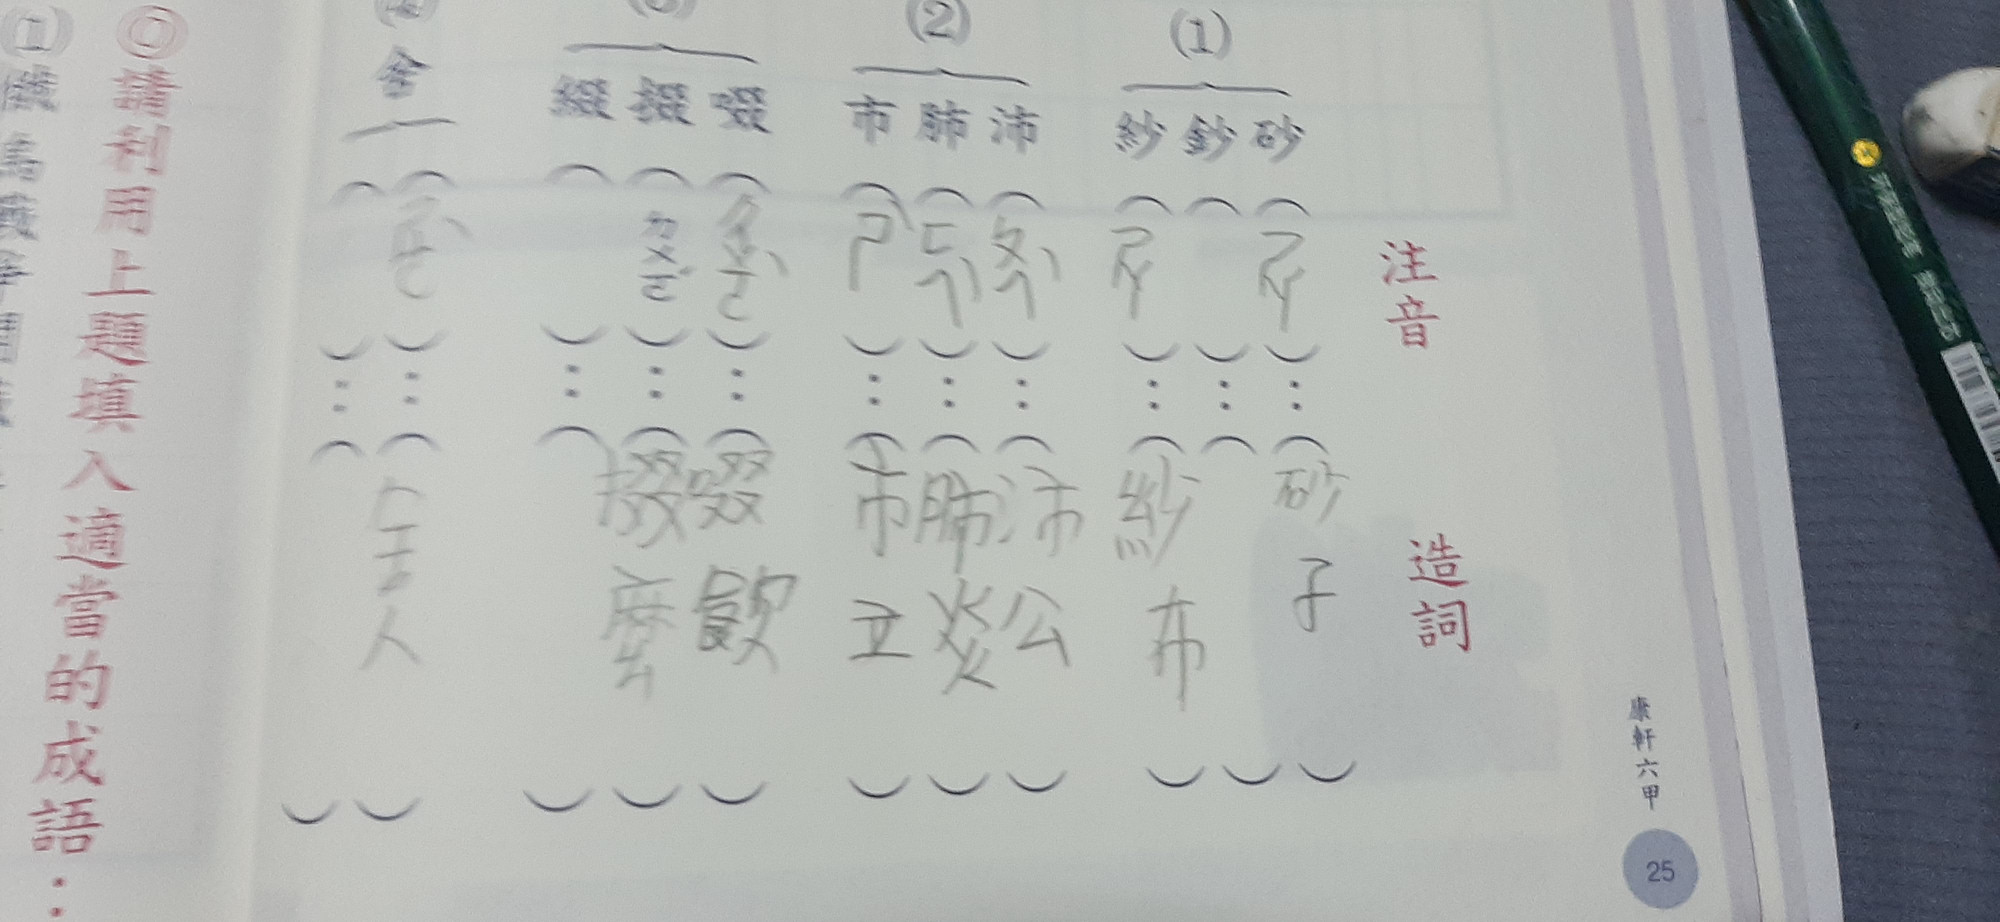 注音
造詞
(1)
砂
ㄕㄚ
砂子
鈔
紗
ㄕㄚ
紗布
(2)
沛
ㄆㄟˋ
沛公
肺
ㄈㄟˋ
肺炎
市
ㄕˋ
市立
啜
ㄔㄨㄛˋ
啜飲
掇
ㄉㄨㄛˊ
綴
請利用上題填入適當的成語：
(1)
康軒六甲
25